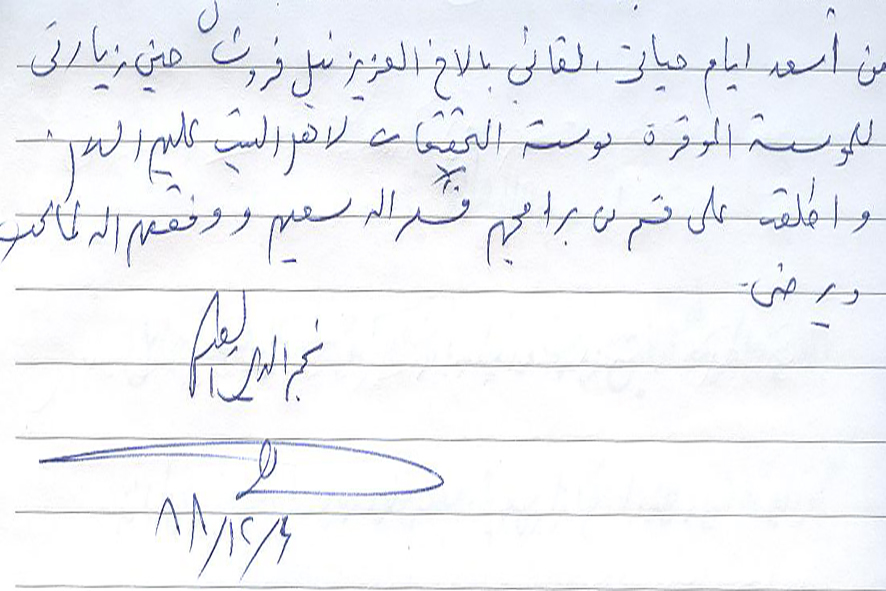 من أسعد ايام حياتي لقائي بالاخ العزيز نبيل حين زيارتي
للمؤسسة الموقرة موسسة التحقيقات لاهل البيت عليهم السلام
واطلعت على قسم من برامجهم فشكر الله سعيهم ووفقهم الله لما يحب
ويرضى.
نجم الدين
٨٨/١٢/٤